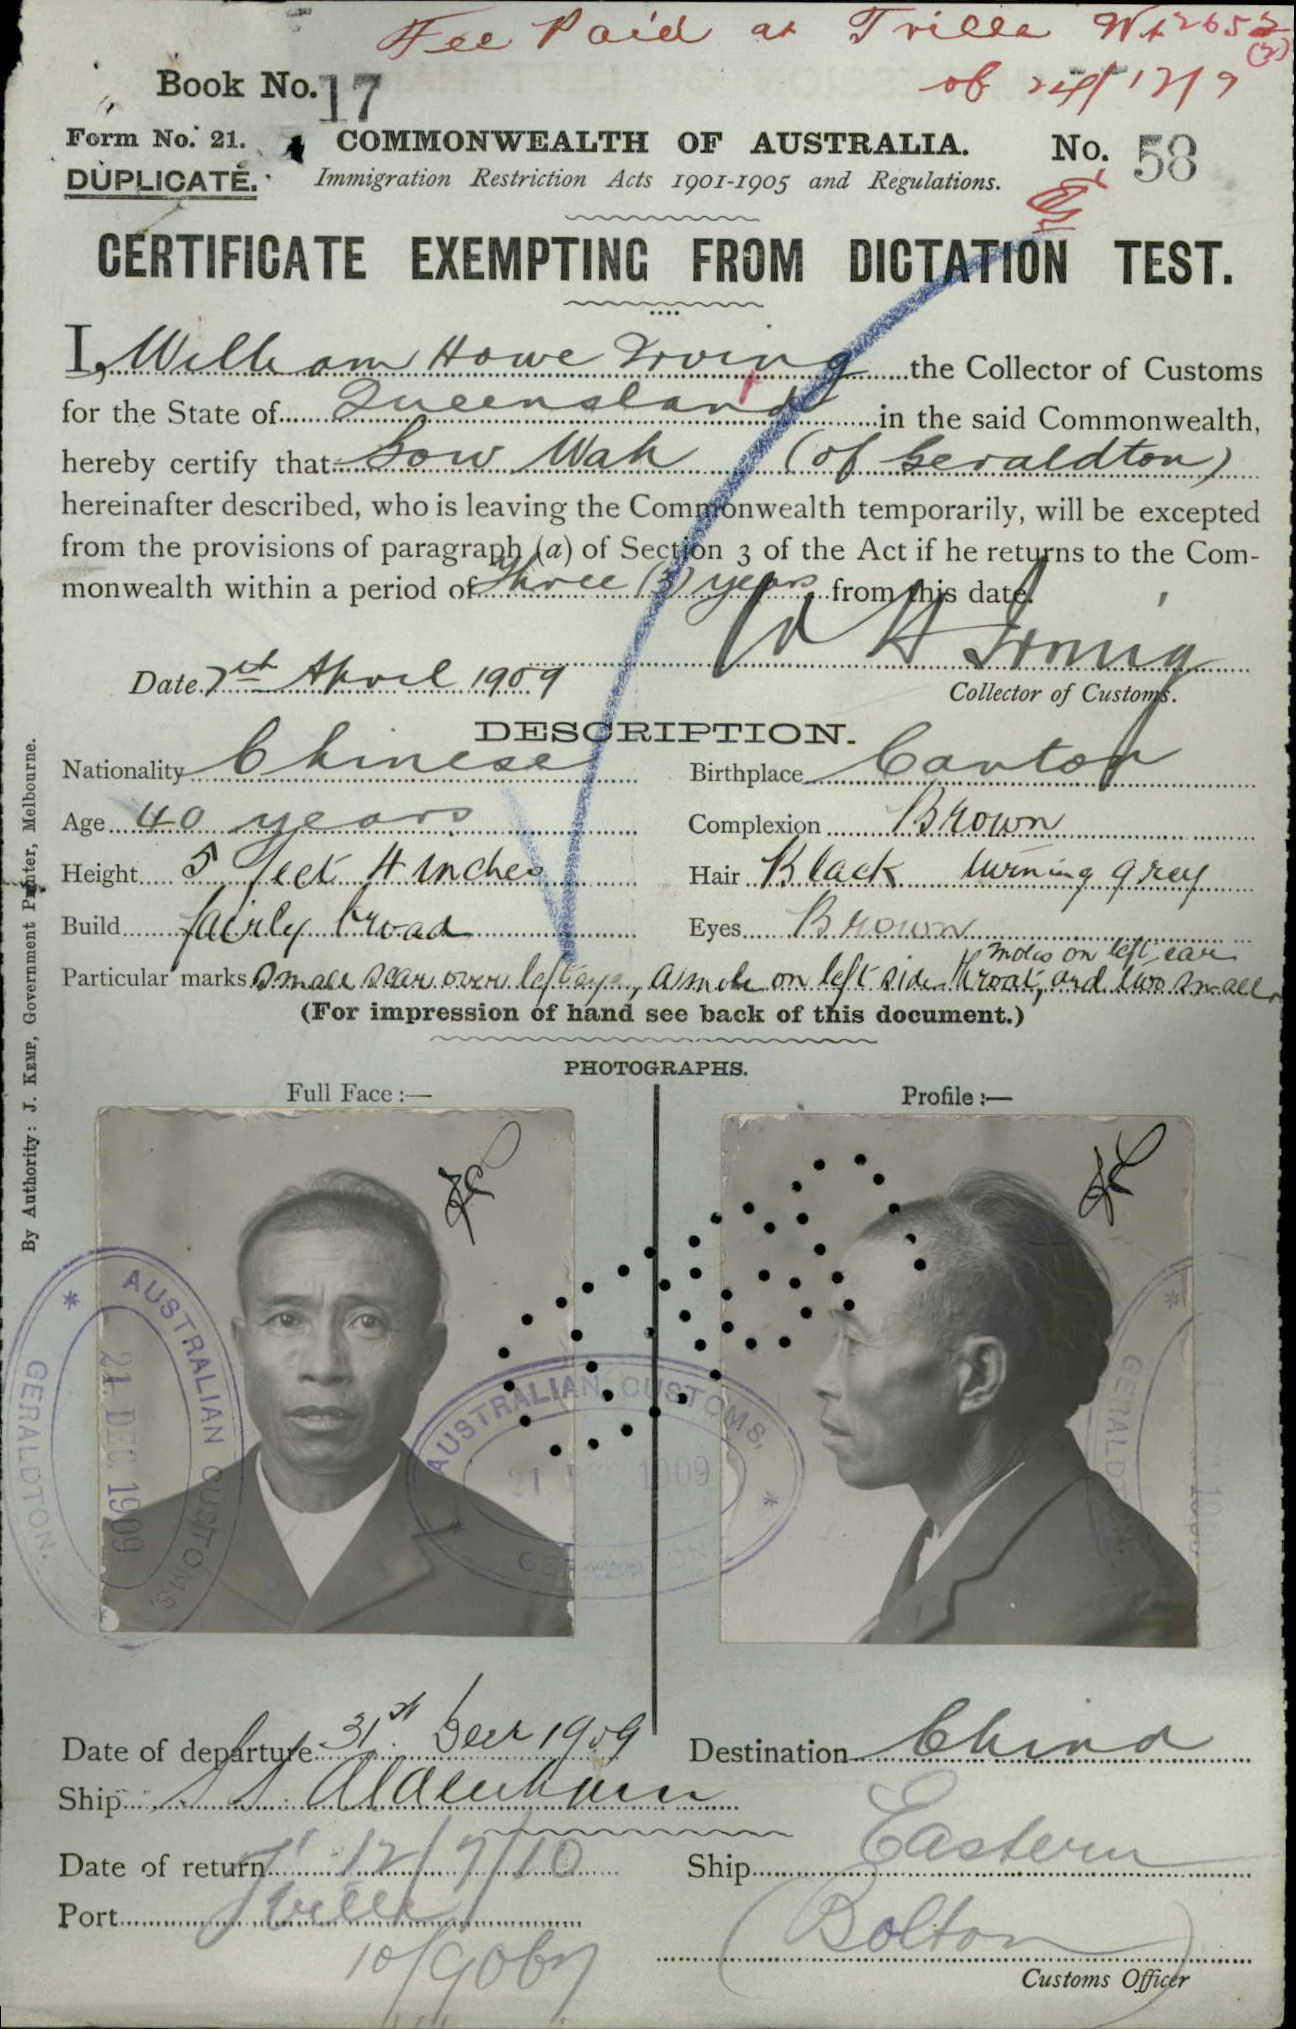 Fee Paid at Tville
of 12/7/9
Book No. 17
Form No. 21. COMMONWEALTH OF AUSTRALIA. No. 58
DUPLICATE. Immigration Restriction Acts 1901-1905 and Regulations.
CERTIFICATE EXEMPTING FROM DICTATION TEST.
I, William Howe Irving the Collector of Customs
for the State of Queensland in the said Commonwealth,
hereby certify that Sow Wah (of Geraldton)
hereinafter described, who is leaving the Commonwealth temporarily, will be excepted
from the provisions of paragraph (a) of Section 3 of the Act if he returns to the Com-
monwealth within a period of three (3) years from this date.
W H Irving
Date 7th April 1909
Collector of Customs.
DESCRIPTION.
Nationality Chinese Birthplace Canton
Age 40 years Complexion Brown
Height 5 feet 4 inches Hair Black turning grey
Build fairly broad Eyes Brown
moles on left ear
Particular marks Small scar over left eye, a mole on left side throat, and two small
(For impression of hand see back of this document.)
PHOTOGRAPHS.
Full Face :— Profile :—
AUSTRALIAN CUSTOMS,
21 DEC 1909
GERALDTON.
AUSTRALIAN CUSTOMS,
21 DEC 1909
GERALDTON
GERALDTON.
By Authority: J. KEMP, Government Printer, Melbourne.
Date of departure 31st Decr 1909 Destination China
Ship S.S. Aldenham
Date of return 12/7/10 Ship Eastern
Port Tville (Bolton)
Customs Officer